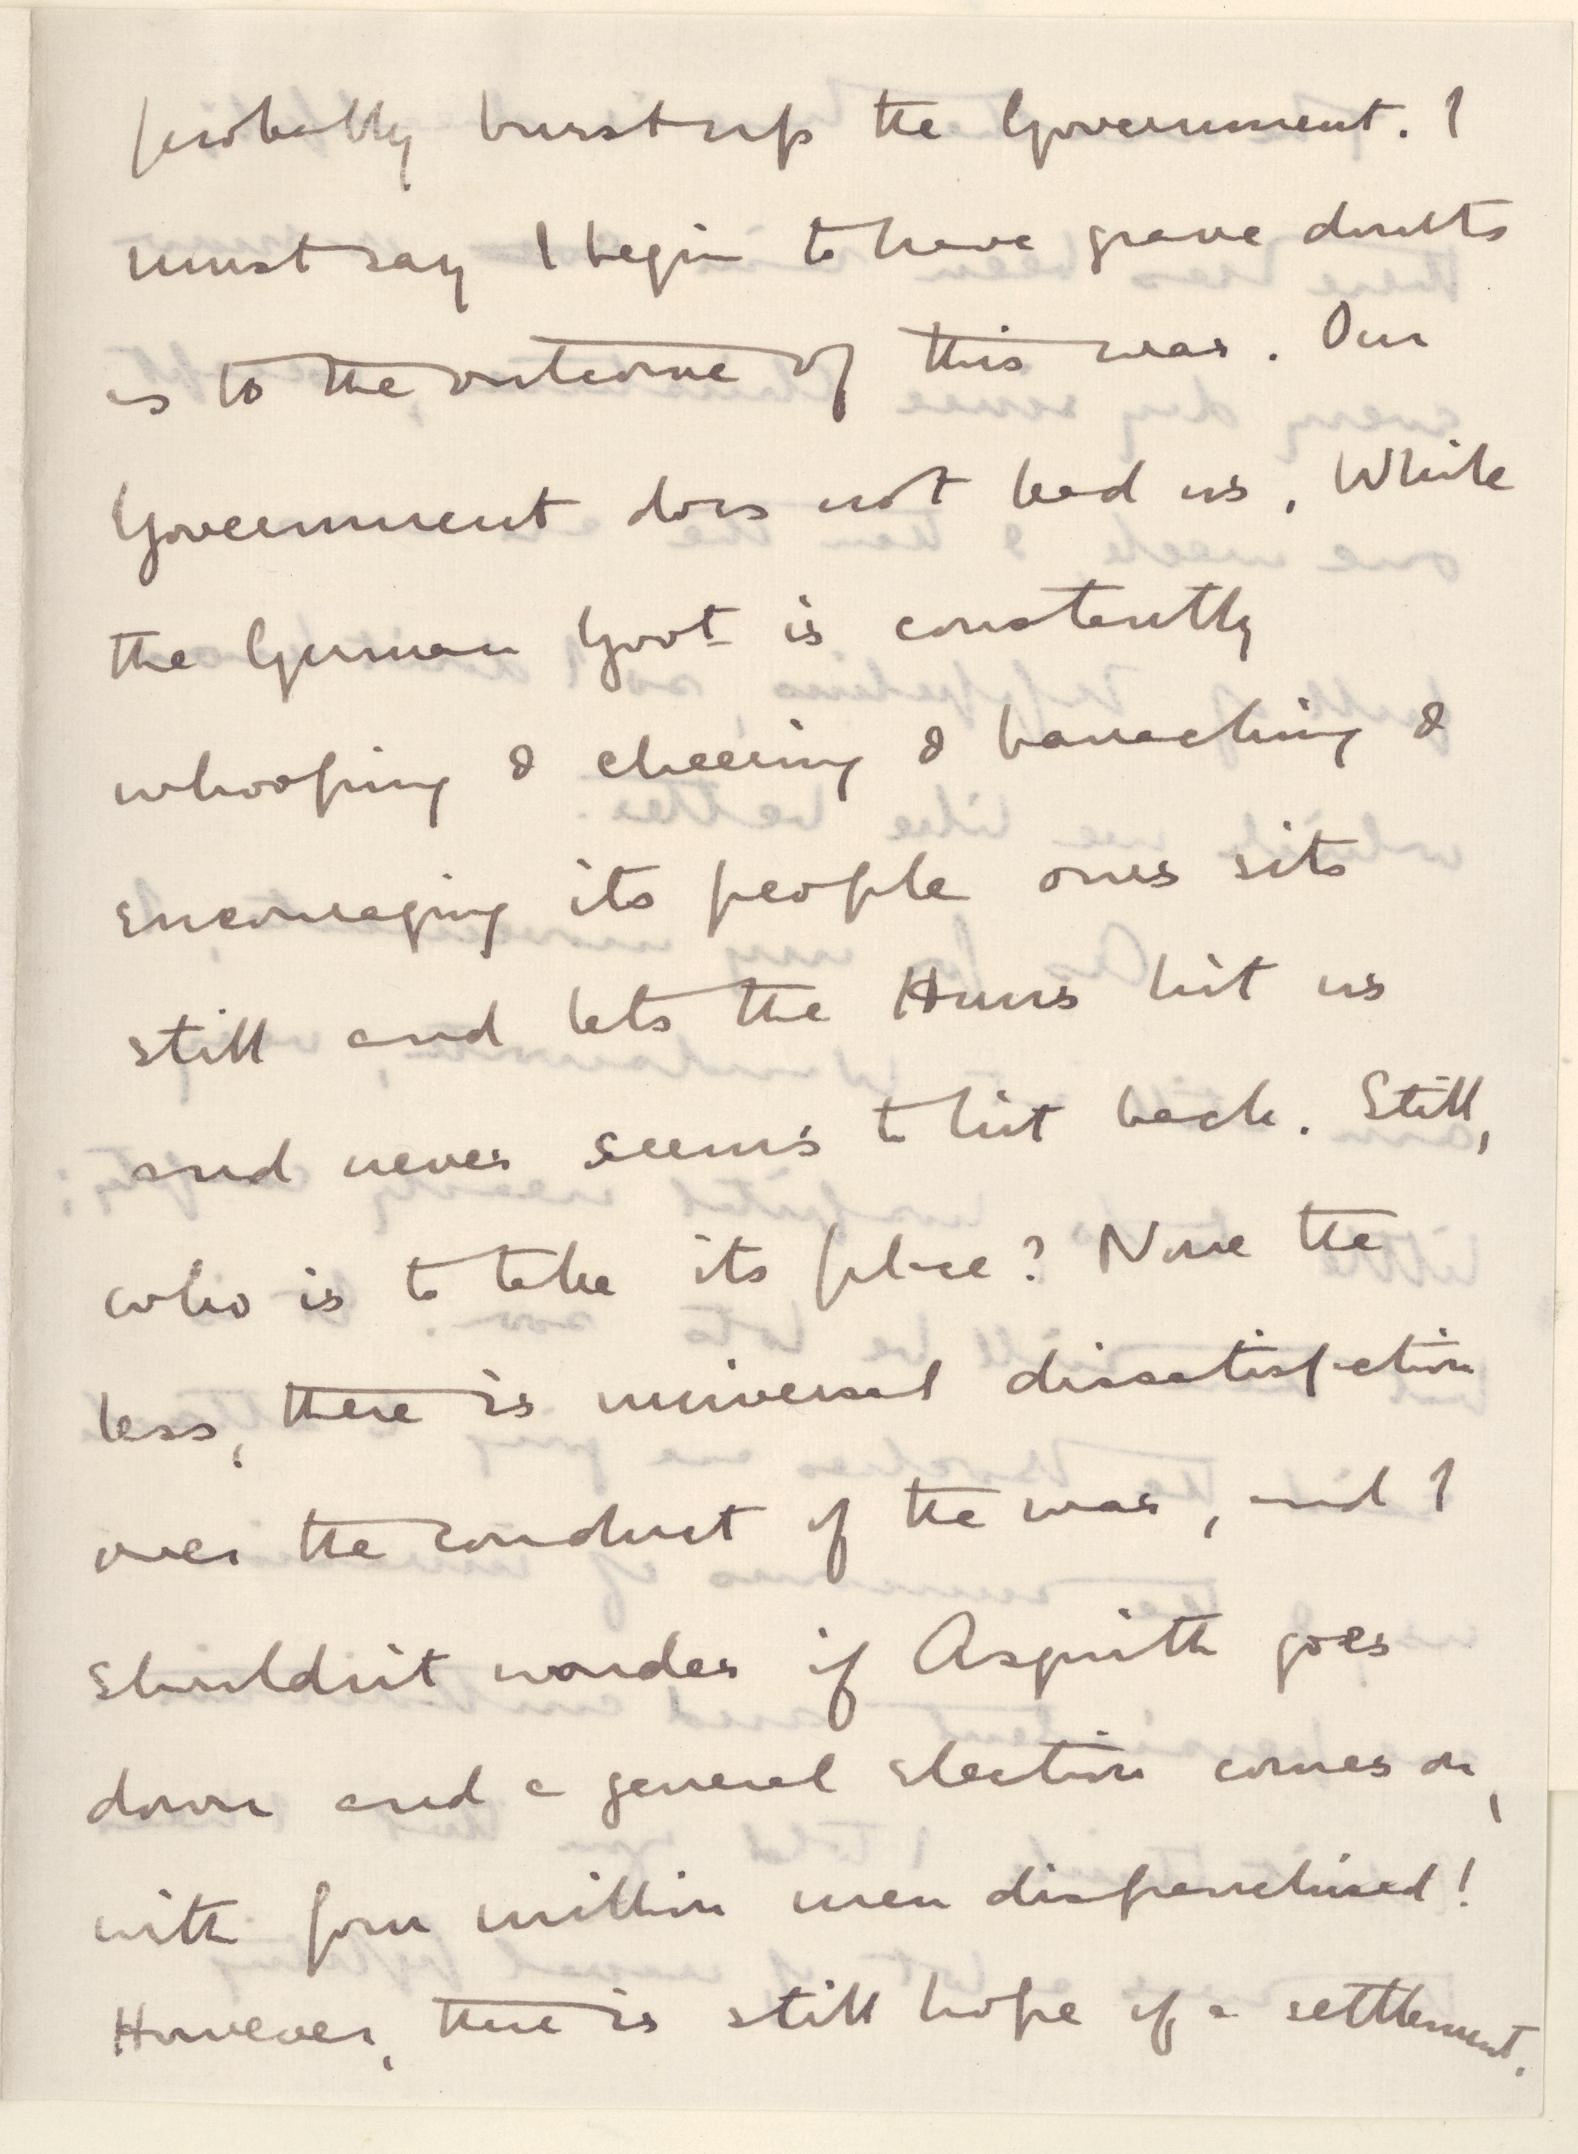 probably burst up the Government. I
must say I begin to have grave doubts
as to the outcome of this war. Our
Government does not lead us. While
the German Govt is constantly
whooping & cheering & banaching &
encouraging its people ours sits
still and lets the Huns hit us
and never seems to hit back. Still,
who is to take its place? None the
less, there is universal dissatisfaction
over the conduct of the war, and I
shouldn't wonder if Asquith goes
down and a general election comes on,
with four million men disfranchised!
However, there is still hope of a settlement.